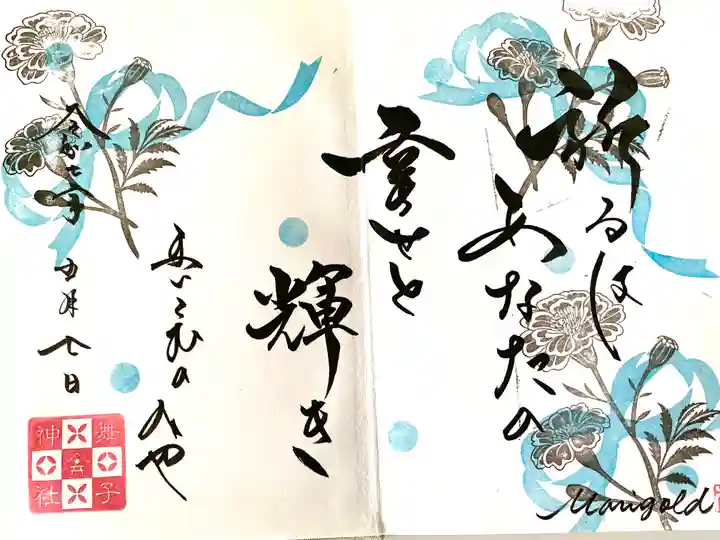 祈るは
あなたの
幸せと
輝き
まいこひめのみや
令和七年
五月七日
舞子
神社
Marigold